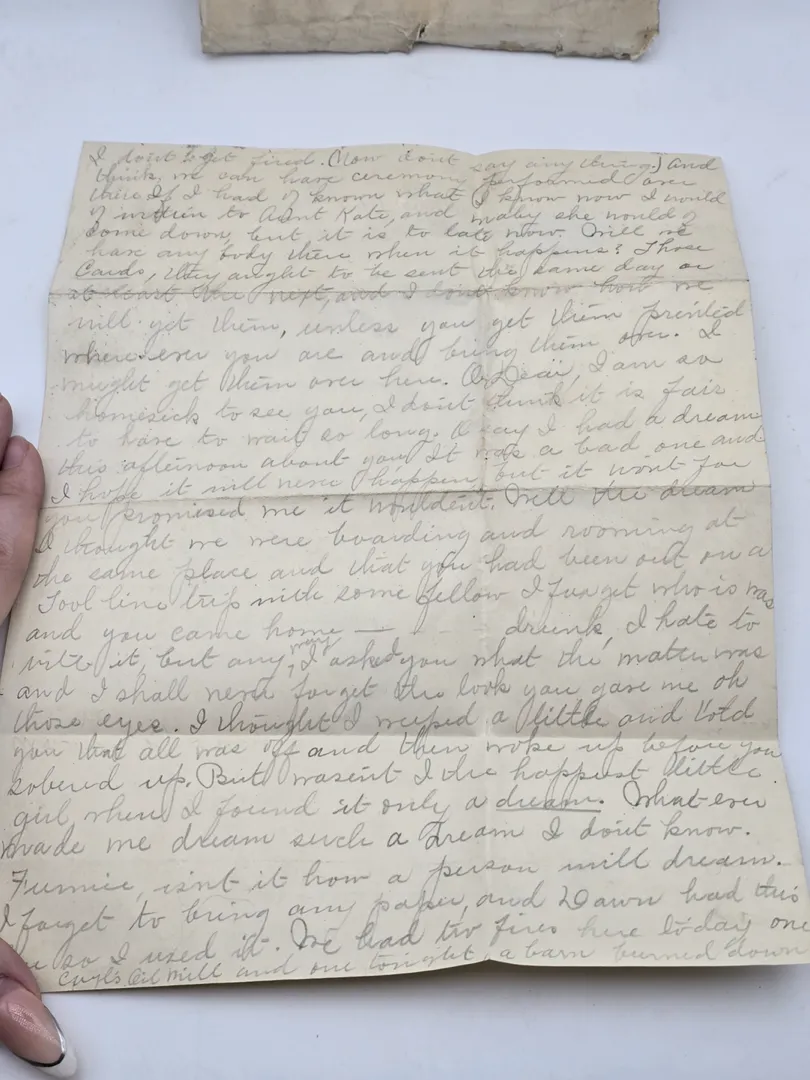 I don't get fired. (Now dont say any thing.) and
think, we can have ceremony performed over
there If I had of known what I know now I would
of written to Aunt Kate, and maby she would of
come down, but it is to late now. Will we
have any body there when it happens? Those
Cards, they aught to be sent the same day or
at least the next, and I don't know how we
will get them, unless you get them printed
where ever you are and bring them over. I
might get them over here. O, Dear, I am so
homesick to see you, I don't think it is fair
to have to wait so long. O say I had a dream
this afternoon about you. It was a bad one and
I hope it will never happen, but it wont for
you promised me it wouldent. Well the dream
I thought we were boarding and rooming at
the same place and that you had been out on a
Tool line trip with some fellow I forget who is was
and you came home — drunk, I hate to
write it, but any way I asked you what the matter was
and I shall never forget the look you gave me oh
those eyes. I thought I weeped a little and told
you that all was off and then woke up before you
sobered up. But wasent I the happest little
girl, when I found it only a dream. What ever
made me dream such a dream I don't know.
Funnie, isnt it how a person will dream.
I forget to bring any paper, and Dawn had this
so I used it. We had two fires here today one
Oil Mill and one tonight, a barn burned down